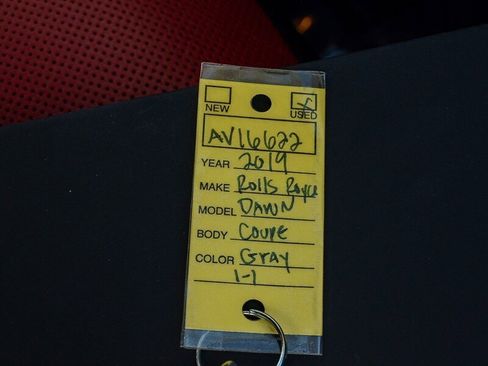 NEW USED
AV16622
YEAR 2019
MAKE Rolls Royce
MODEL DAWN
BODY Coupe
COLOR Gray
1-1